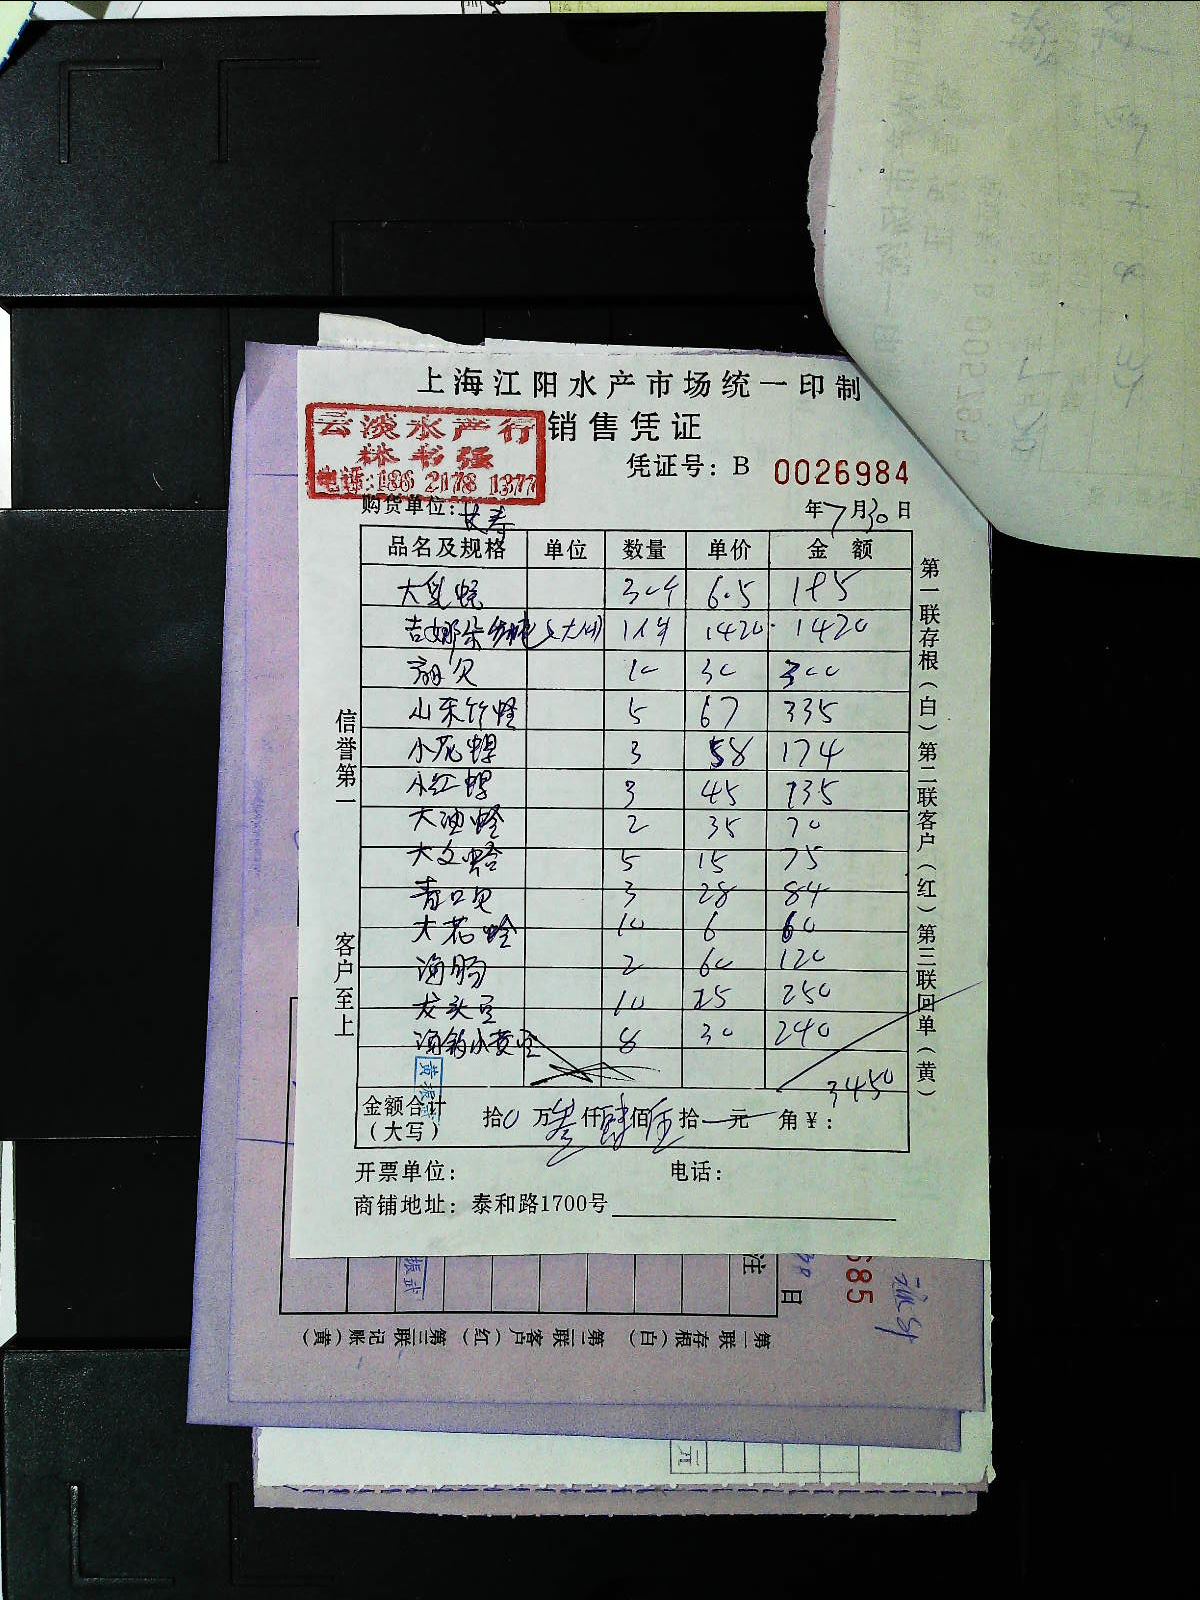 上海江阳水产市场统一印制
云淡水产行
林书强
电话:186 2178 1377
销售凭证
凭证号：B 0026984
购货单位：
年7月30日
品名及规格 单位 数量 单价 金额
大 30个 6.5 195
吉娜朵 1420 1420
扇贝 10 30 300
山东竹蛏 5 67 335
小花螺 3 58 174
小红螺 3 45 135
大油蛤 2 35 70
大文蛤 5 15 75
青口贝 3 28 84
大花蛤 10 6 60
海肠 2 60 120
龙头豆 10 25 250
海钓小黄 8 30 240
3450
金额合计（大写） 拾0万叁仟肆佰伍拾一元 角￥：
开票单位： 电话：
商铺地址：泰和路1700号
信誉第一
客户至上
第一联存根（白）第二联客户（红）第三联回单（黄）
振武
注
日
685
第一联 存根（白） 第二联 客户（红） 第三联 记账（黄）
元